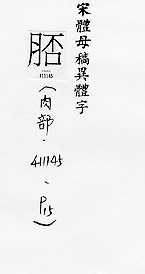 宋體母稿異體字
411145
(肉部．411145、P.15)